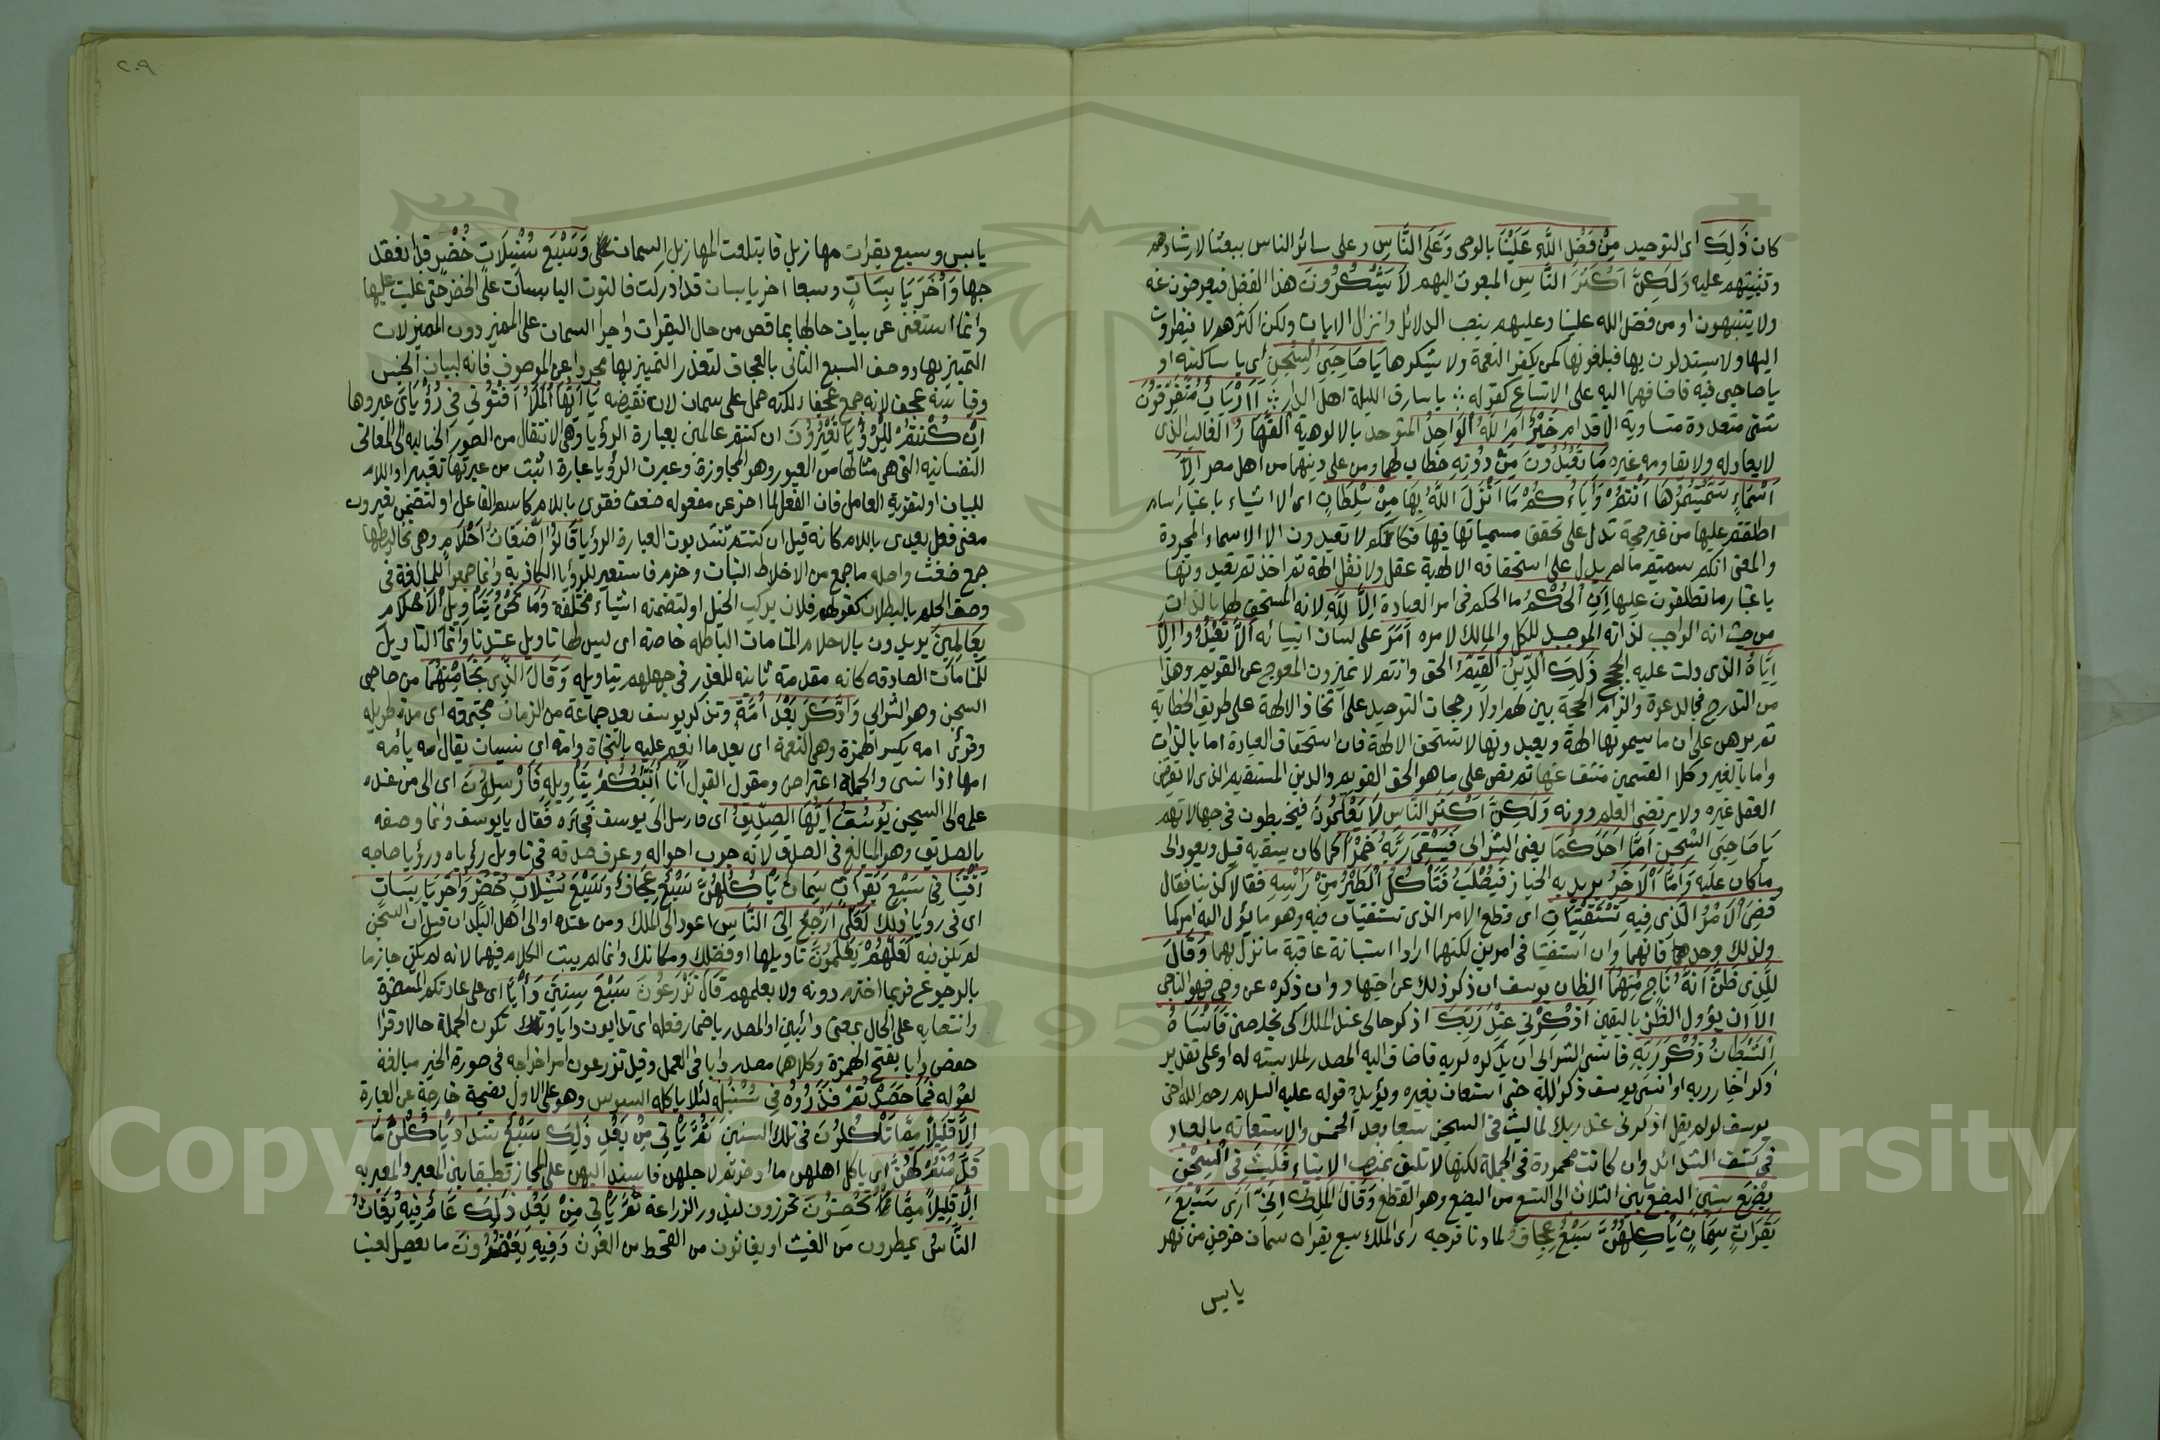 ٢٠٩
كان ذَلِكَ اى التوحيد مِنْ فَضْلِ اللَّهِ عَلَيْنَا بالوحى وَعَلَى النَّاسِ وعلى سائر الناس ببعثنا لارشادهم
وتثبيتهم عليه وَلَكِنَّ اَكْثَرَ النَّاسِ المبعوث اليهم لَا يَشْكُرُونَ هذا الفضل فيعرضون عنه
ولا يتنبهون او من فضل الله علينا وعليهم بنصب الدلائل وانزال الايات ولكن اكثرهم لا ينظرون
اليها ولا يستدلون بها فيلغونها كمن يكفر النعمة ولا يشكرها يَا صَاحِبَىِ السِّجْنِ اى يا ساكنيه او
يا صاحبى فيه فاضافهما اليه على الاتساع كقوله يا سارق الليلة اهل الدار ءَاَرْبَابٌ مُتَفَرِّقُونَ
شتى متعددة متساوية الاقدام خَيْرٌ اَمِ اللَّهُ الْوَاحِدُ المتوحد بالالوهية الْقَهَّارُ الغالب الذى
لا يعادله ولا يقاومه غيره مَا تَعْبُدُونَ مِنْ دُونِهِ خطاب لهما ومن على دينهما من اهل مصر اِلَّا
اَسْمَاءً سَمَّيْتُمُوهَا اَنْتُمْ وَآبَاؤُكُمْ مَا اَنْزَلَ اللَّهُ بِهَا مِنْ سُلْطَانٍ اى الا اشياء باعتبار اسام
اطلقتم عليها من غير حجة تدل على تحقق مسمياتها فيها فكانكم لا تعبدون الا الاسماء المجردة
والمعنى انكم سميتم ما لم يدل على استحقاقه الالهية عقل ولا نقل الهة ثم اخذتم تعبدونها
باعتبار ما تطلقون عليها اِنِ الْحُكْمُ ما الحكم فى امر العبادة اِلَّا لِلَّهِ لانه المستحق لها بالذات
من حيث انه الواجب لذاته الموجد للكل والمالك لامره اَمَرَ على لسان انبيائه اَلَّا تَعْبُدُوا اِلَّا
اِيَّاهُ الذى دلت عليه الحجج ذَلِكَ الدِّينُ الْقَيِّمُ الحق وانتم لا تميزون المعوج عن القويم وهذا
من التدرج فى الدعوة والزام الحجة بين لهم اولا رجحان التوحيد على اتخاذ الالهة على طريق الخطابة
ثم برهن على ان ما يسمونها الهة ويعبدونها لا تستحق الالهة فان استحقاق العبادة اما بالذات
واما بالغير وكلا القسمين منتف عنها ثم نص على ما هو الحق القويم والدين المستقيم الذى لا يقتضى
العقل غيره ولا يرتضى العلم دونه وَلَكِنَّ اَكْثَرَ النَّاسِ لَا يَعْلَمُونَ فيخبطون فى جهالاتهم
يَا صَاحِبَىِ السِّجْنِ اَمَّا اَحَدُكُمَا يعنى الشرابى فَيَسْقِى رَبَّهُ خَمْرًا كما كان يسقيه قبل ويعود الى
ما كان عليه وَاَمَّا الْآخَرُ يريد به الخباز فَيُصْلَبُ فَتَأْكُلُ الطَّيْرُ مِنْ رَأْسِهِ فقالا كذبنا فقال
قُضِىَ الْاَمْرُ الَّذِى فِيهِ تَسْتَفْتِيَانِ اى قطع الامر الذى تستفتيان فيه وهو ما يؤل اليه امركما
ولذلك وحده فانهما وان استفتيا فى امرين لكنهما ارادا استبانة عاقبة ما نزل بهما وَقَالَ
لِلَّذِى ظَنَّ اَنَّهُ نَاجٍ مِنْهُمَا الظان يوسف ان ذكر ذلك عن اجتهاد وان ذكره عن وحى فهو الناجى
الا ان يؤول الظن باليقين اذْكُرْنِى عِنْدَ رَبِّكَ اذكر حالى عند الملك كى يخلصنى فَاَنْسَاهُ
الشَّيْطَانُ ذِكْرَ رَبِّهِ فانسى الشرابى ان يذكره لربه فاضاف اليه المصدر لملابسته له او على تقدير
ذكر اخبار ربه او انسى يوسف ذكر الله حتى استعان بغيره ويؤيده قوله عليه السلام رحم الله اخى
يوسف لو لم يقل اذكرنى عند ربك لما لبث فى السجن سبعا بعد الخمس والاستعانه بالعباد
فى كشف الشدائد وان كانت محمودة فى الجملة لكنها لا تليق بمنصب الانبياء فَلَبِثَ فِى السِّجْنِ
بِضْعَ سِنِينَ البضع بين الثلاث الى التسع من البضع وهو القطع وَقَالَ الْمَلِكُ اِنِّى اَرَى سَبْعَ
بَقَرَاتٍ سِمَانٍ يَأْكُلُهُنَّ سَبْعٌ عِجَافٌ لما دنا فرجه راى الملك سبع بقرات سمان خرجن من نهر
يابس
يابس وسبع بقرات مهازيل فابتلعت المهازيل السمان وَسَبْعَ سُنْبُلَاتٍ خُضْرٍ قد انعقد
حبها وَاُخَرَ يَابِسَاتٍ وسبعا اخر يابسات قد ادركت فالتوت اليابسات على الخضر حتى غلبت عليها
وانما استغنى عن بيان حالها بما قص من حال البقرات واجرا السمان على المميز دون المميز لان
التميز بها ووصف السبع الثانى بالعجاف لتعذر التميز بها مجردا عن الموصوف فانه لبيان الجنس
وقياسه عجف لانه جمع عجفا ولكنه حمل على سمان لان نقيضه يَا اَيُّهَا الْمَلَأُ اَفْتُونِى فِى رُؤْيَاىَ عبروها
اِنْ كُنْتُمْ لِلرُّؤْيَا تَعْبُرُونَ ان كنتم عالمين بعبارة الرؤيا وهى الانتقال من الصور الخياليه الى المعانى
النفسانيه التى هى مثالها من العبور وهو المجاوزة وعبرت الرؤيا عبارة اثبت من عبرتها تعبيرا واللام
للبيان او لتقوية العامل فان الفعل لما اخر عن مفعوله ضعف فقوى باللام كاسم الفاعل او لتضمن تعبرون
معنى فعل يعدى باللام كانه قيل ان كنتم تنتدبون لعبارة الرؤيا قَالُوا اَضْغَاثُ اَحْلَامٍ وهى تخاليطها
جمع ضغث واصله ما جمع من اخلاط النبات وحزم فاستعير للرؤيا الكاذبه وانما جمعوا للمبالغة فى
وصف الحلم بالبطلان كقولهم فلان يركب الخيل او لتضمنه اشياء مختلفه وَمَا نَحْنُ بِتَأْوِيلِ الْاَحْلَامِ
بِعَالِمِينَ يريدون بالاحلام المنامات الباطله خاصة اى ليس لها تاويل عندنا وانما التاويل
للمنامات الصادقه كانه مقدمة ثانيه للعذر فى جهلهم بتاويله وَقَالَ الَّذِى نَجَا مِنْهُمَا من صاحبى
السجن وهو الشرابى وَادَّكَرَ بَعْدَ اُمَّةٍ وتذكر يوسف بعد جماعة من الزمان مجتمعه اى مدة طويله
وقرئ امه بكسر الهمزة وهى النعمة اى بعد ما انعم عليه بالنجاة وامه اى نسيان يقال امه يأمه
امها اذا نسى والجملة اعتراض ومقول القول اَنَا اُنَبِّئُكُمْ بِتَأْوِيلِهِ فَاَرْسِلُونِ اى الى من عنده
علمه الى السجن يُوسُفُ اَيُّهَا الصِّدِّيقُ اى فارسل الى يوسف فجاءه فقال يا يوسف وانما وصفه
بالصديق وهو المبالغ فى الصدق لانه جرب احواله وعرف صدقه فى تاويل رؤياه ورؤيا صاحبه
اَفْتِنَا فِى سَبْعِ بَقَرَاتٍ سِمَانٍ يَأْكُلُهُنَّ سَبْعٌ عِجَافٌ وَسَبْعِ سُنْبُلَاتٍ خُضْرٍ وَاُخَرَ يَابِسَاتٍ
اى فى رؤيا ذلك لَعَلِّى اَرْجِعُ اِلَى النَّاسِ اعود الى الملك ومن عنده او الى اهل البلد ان قيل ان السجن
لم يكن فيه لَعَلَّهُمْ يَعْلَمُونَ تاويلها او فضلك ومكانك وانما لم يبت الكلام فيهما لانه لم يكن جازما
بالرجوع فربما اخترم دونه ولا بعلمهم قَالَ تَزْرَعُونَ سَبْعَ سِنِينَ دَأَبًا اى على عادتكم المستمرة
وانتصابه على الحال بمعنى دائبين او المصدر باضمار فعله اى تدابون دابا وتكون الجملة حالا وقرا
حفص دابا بفتح الهمزة وكلاهما مصدر داب فى العمل وقيل تزرعون امر اخرجه فى صورة الخبر مبالغة
لقوله فَمَا حَصَدْتُمْ فَذَرُوهُ فِى سُنْبُلِهِ لئلا ياكله السوس وهو على الاول نصيحة خارجة عن العبارة
اِلَّا قَلِيلًا مِمَّا تَأْكُلُونَ فى تلك السنين ثُمَّ يَأْتِى مِنْ بَعْدِ ذَلِكَ سَبْعٌ شِدَادٌ يَأْكُلْنَ مَا
قَدَّمْتُمْ لَهُنَّ اى ياكل اهلهن ما ادخرتم لاجلهن فاسند اليهن على المجاز تطبيقا بين المعبر والمعبر به
اِلَّا قَلِيلًا مِمَّا تُحْصِنُونَ تحرزون لبذور الزراعة ثُمَّ يَأْتِى مِنْ بَعْدِ ذَلِكَ عَامٌ فِيهِ يُغَاثُ
النَّاسُ يمطرون من الغيث او يغاثون من القحط من الغوث وَفِيهِ يَعْصِرُونَ ما يعصر كعنب
Copyright © King Saud University
1957